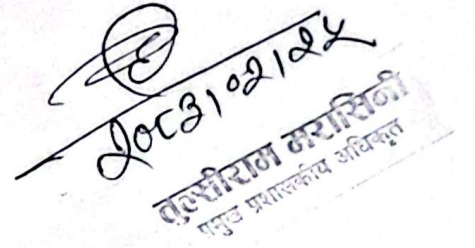 २०८३।०२।२५
तुल्सीराम मरासिनी
प्रमुख प्रशासकीय अधिकृत